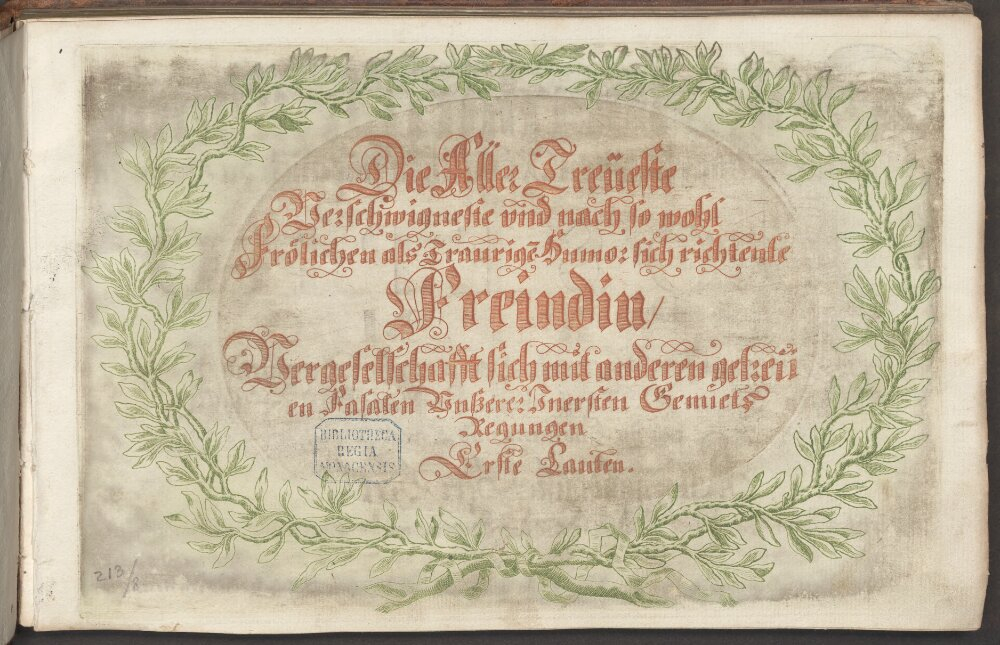 Die Aller Treüeste
Verschwigneste vnd nach so wohl
Frölichen als Traurigē Humor sich richtente
Freindin/
Vergeselschafft sich mit anderen getreü
en Fasalen Vnßerer Inersten Gemiets
Regungen
Erste Lauten.
BIBLIOTHECA
REGIA
MONACENSIS
213/8